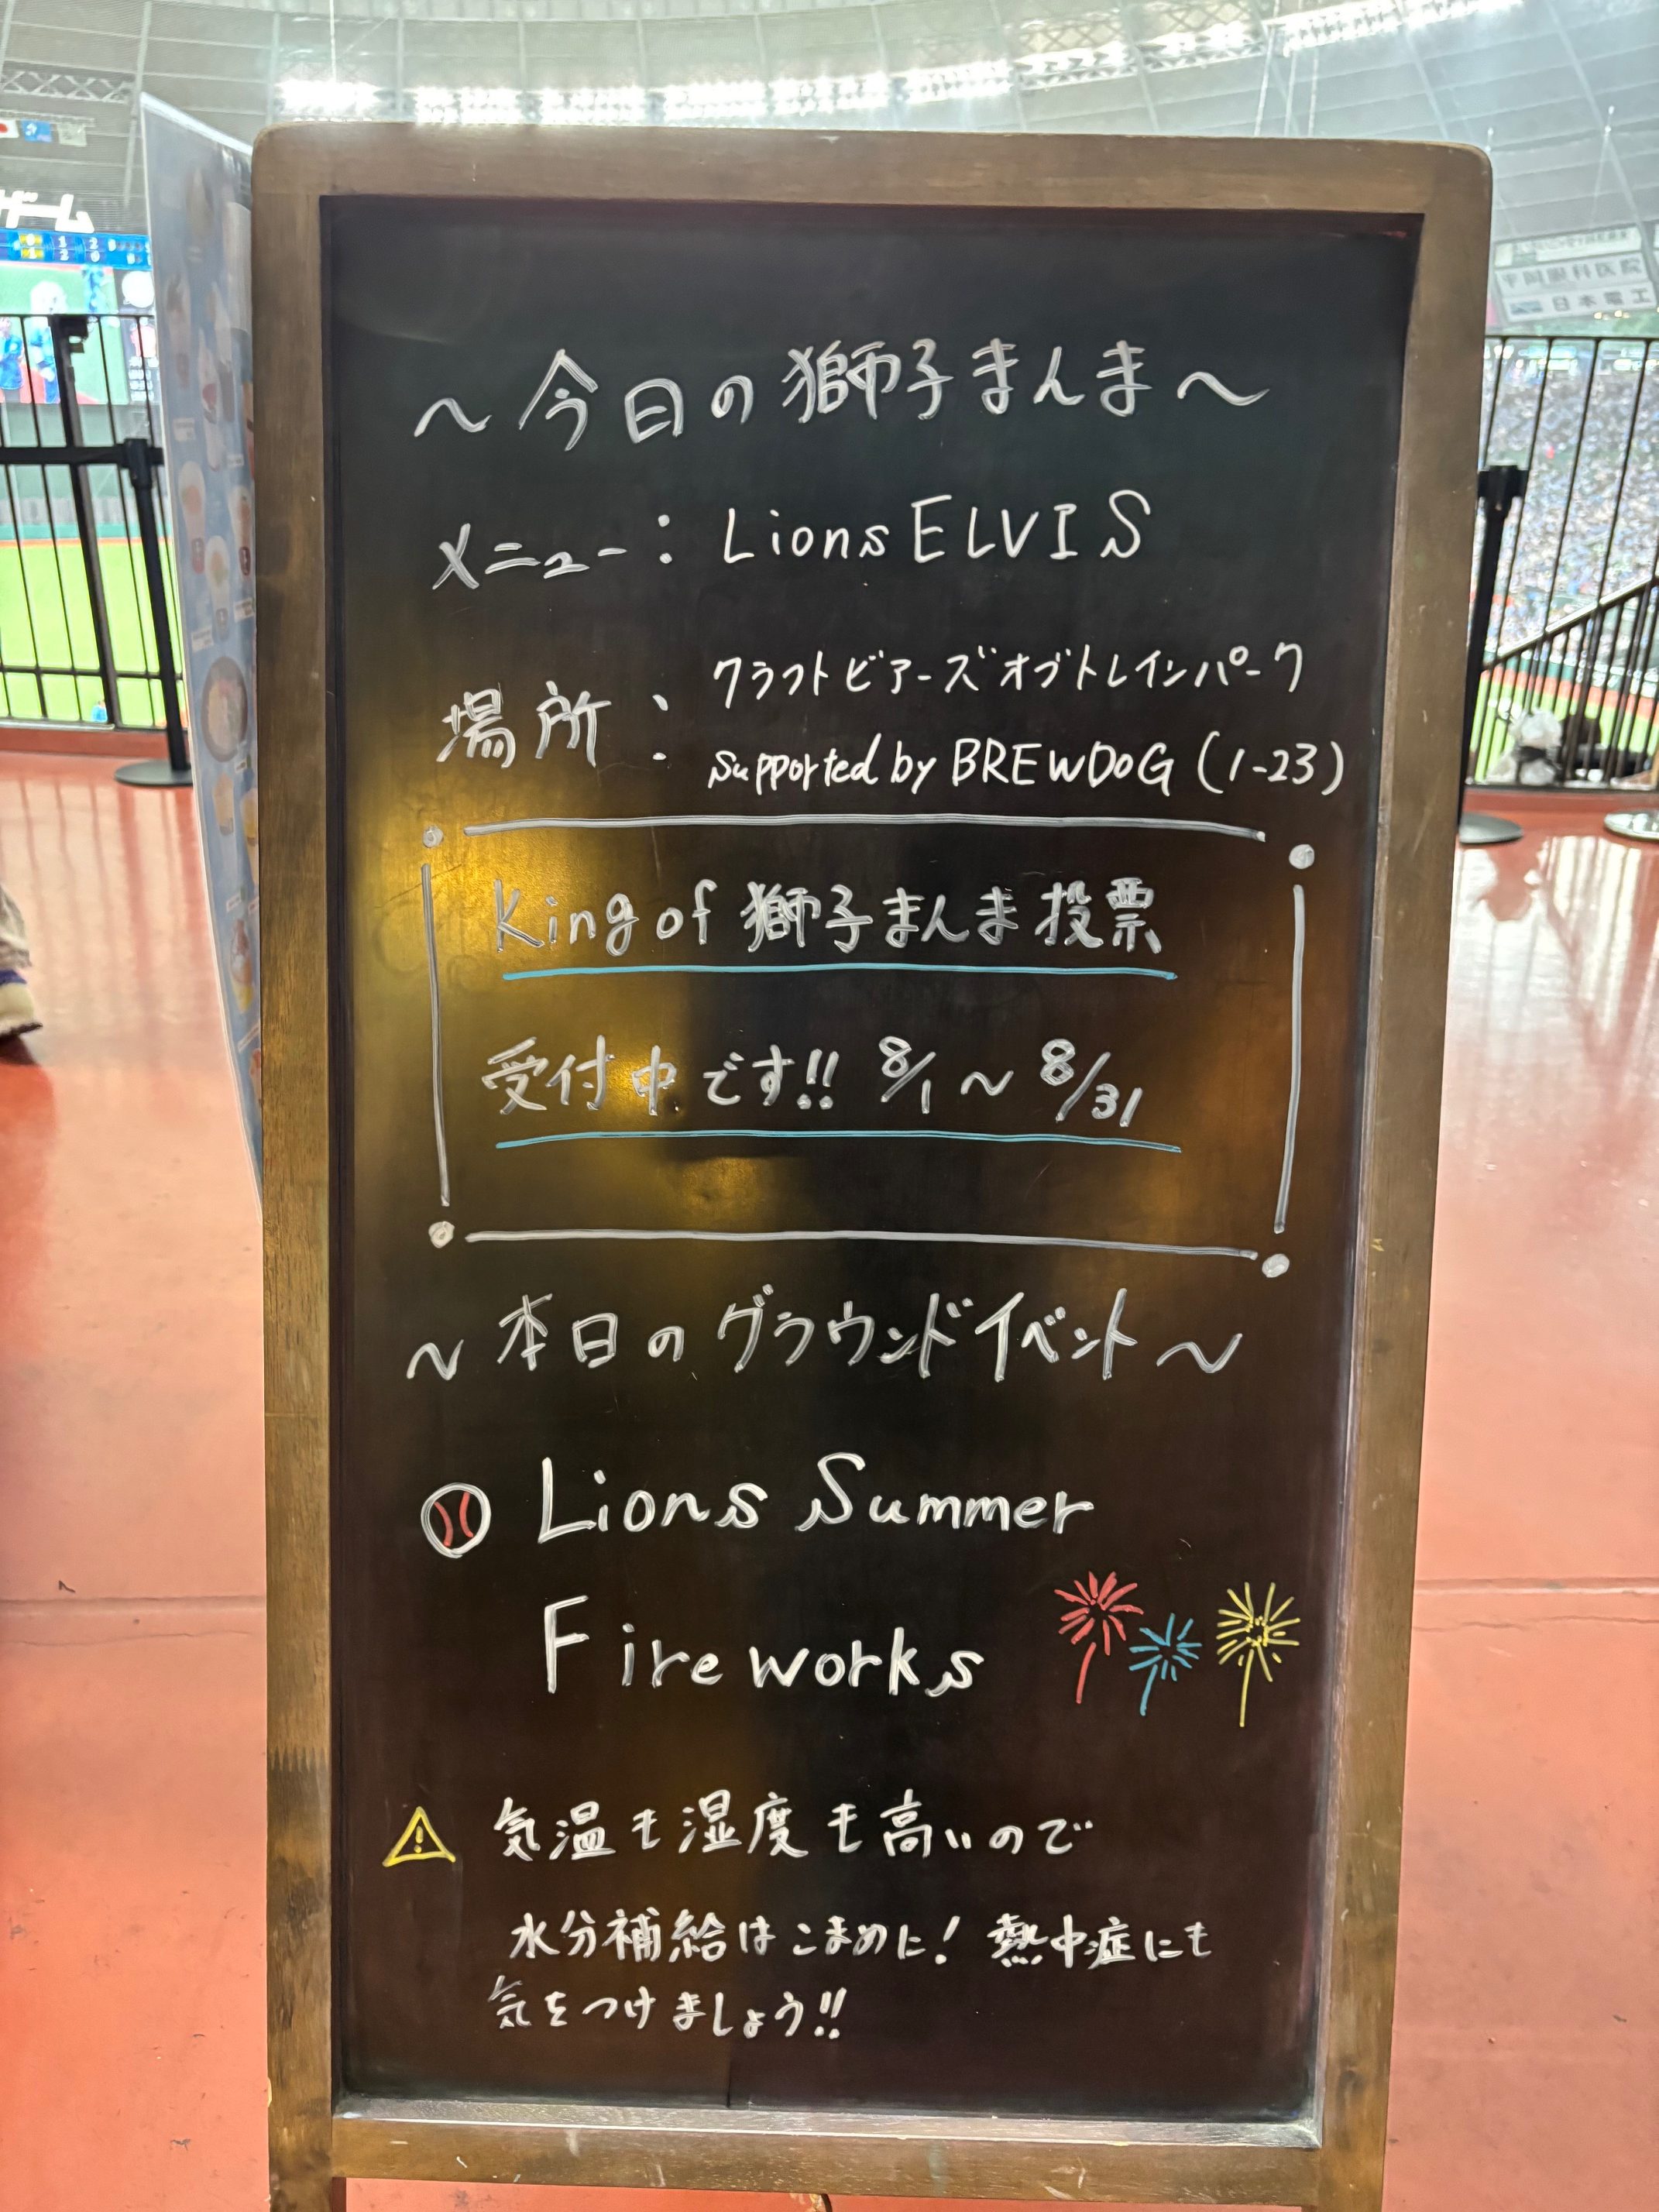 ～今日の獅子まんま～
メニュー：Lions ELVIS
場所：クラフトビアーズオブトレインパーク
supported by BREWDOG (1-23)
King of 獅子まんま投票
受付中です!! 8/1～8/31
～本日のグラウンドイベント～
Lions Summer
Fireworks
気温も湿度も高いので
水分補給はこまめに！熱中症にも
気をつけましょう!!